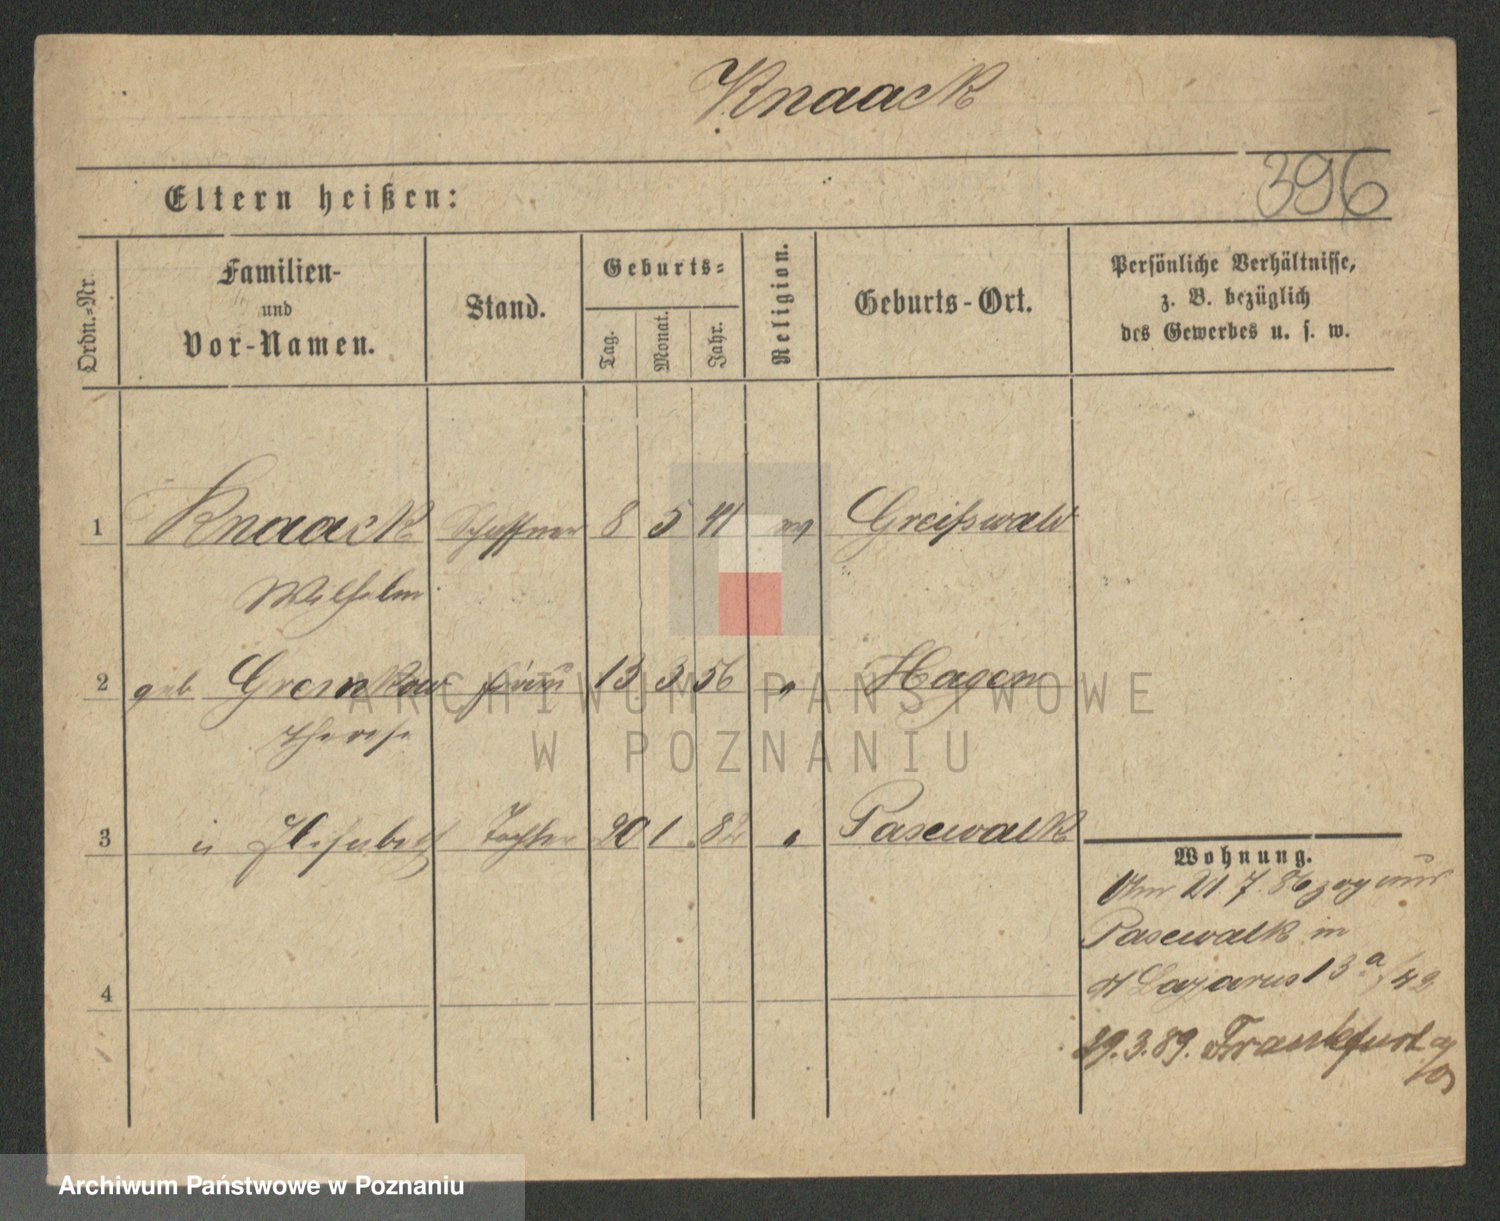 Knaack
396
Eltern heißen:
Ordn.-Nr.
Familien-
und
Vor-Namen.
Stand.
Geburts-
Tag.
Monat.
Jahr.
Religion.
Geburts-Ort.
Persönliche Verhältnisse,
z. B. bezüglich
des Gewerbes u. s. w.
1 Knaack Schaffner 8 5 41 Greifswald
Wilhelm
2 geb. Gremkow Frau 13 3 56 " Hagen
Therese
3 Elisabeth Tochter 20 1 82 " Pasewalk
Wohnung.
21.7.86 zog
Pasewalk in
St Lazarus 13a/42
4
29.3.89. Frankfurt a/O
ARCHIWUM PAŃSTWOWE
W POZNANIU
Archiwum Państwowe w Poznaniu